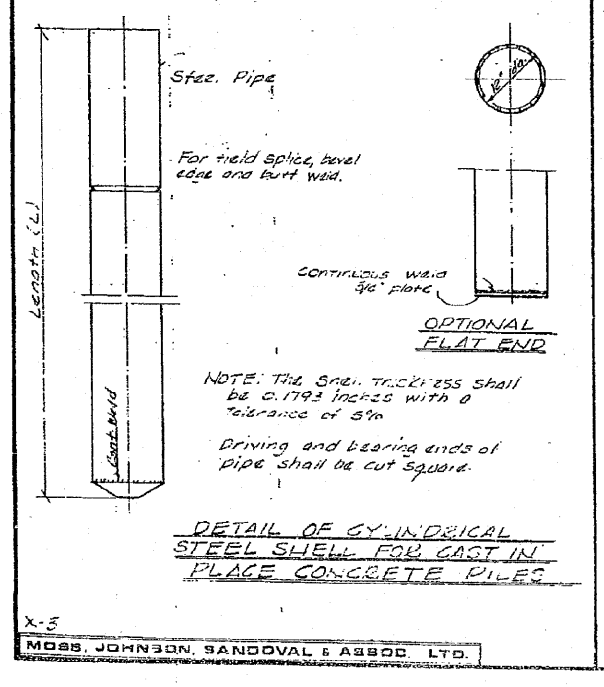 Steel Pipe
12" dia.
For field splice, bevel
edge and butt weld.
Length (L)
continuous weld
plate
OPTIONAL
FLAT END
NOTE: The Shell Thickness shall
be 0.1793 inches with a
Tolerance of 5%
Cont. Weld
Driving and bearing ends of
pipe shall be cut square.
DETAIL OF CYLINDRICAL
STEEL SHELL FOR CAST IN
PLACE CONCRETE PILES
X-3
MOSS, JOHNSON, SANDOVAL & ASSOC. LTD.